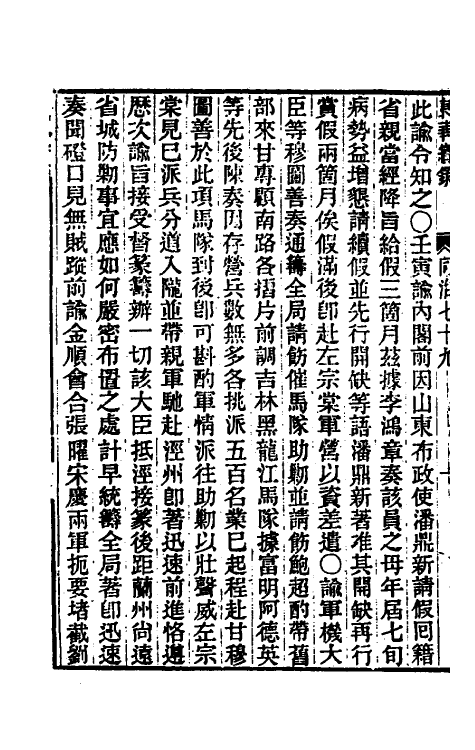 此諭令知之〇壬寅諭內閣前因山東布政使潘鼎新請假囘籍
省親當經降旨給假三箇月茲據李鴻章奏該員之母年屆七旬
病勢益增懇請續假並先行開缺等語潘鼎新著准其開缺再行
賞假兩箇月俟假滿後卽赴左宗棠軍營以資差遣〇諭軍機大
臣等穆圖善奏通籌全局請飭催馬隊助勦並請飭鮑超酌帶舊
部來甘專顧南路各摺片前調吉林黑龍江馬隊據富明阿德英
等先後陳奏因存營兵數無多各挑派五百名業已起程赴甘穆
圖善於此項馬隊到後卽可斟酌軍情派往助勦以壯聲威左宗
棠見已派兵分道入隴並帶親軍馳赴涇州卽著迅速前進恪遵
歷次諭旨接受督篆籌辦一切該大臣抵涇接篆後距蘭州尙遠
省城防勦事宜應如何嚴密布置之處計早統籌全局著卽迅速
奏聞磴口見無賊蹤前諭金順會合張曜宋慶兩軍扼要堵截劉